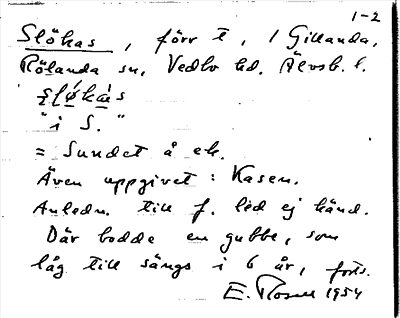 1-2
Slökas, förr t, i Gillanda,
Rölanda sn, Vedbo hd. Älvsb. l.
"i S."
= Sundet å ek.
Även uppgivet: Kasen.
Anledn. till f. led ej känd.
Där bodde en gubbe, som
låg till sängs i 6 år, forts.
E. Rosell 1954